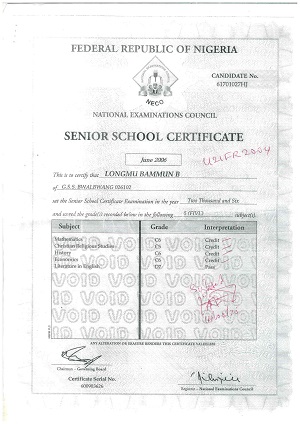 FEDERAL REPUBLIC OF NIGERIA
CANDIDATE No.
61701027HJ
NECO
NATIONAL EXAMINATIONS COUNCIL
SENIOR SCHOOL CERTIFICATE
June 2006
This is to certify that LONGMU BAMMUN B
of G.S.S. 016101
sat the Senior School Certificate Examination in the year Two Thousand and Six
and scored the grade(s) recorded below in the following 5 (FIVE) subject(s).
Subject Grade Interpretation
Mathematics C6 Credit
Christian Religious Studies C6 Credit
History C6 Credit
Economics C6 Credit
Literature in English D7 Pass
VOID VOID VOID VOID
ANY ALTERATION OR ERASURE RENDERS THIS CERTIFICATE VALUELESS
Chairman - Governing Board
Certificate Serial No.
Registrar - National Examinations Council